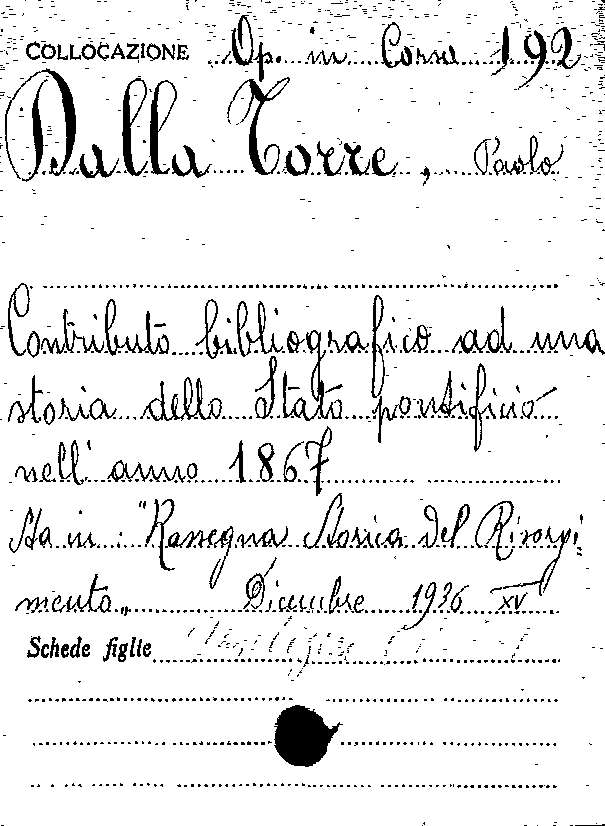 COLLOCAZIONE Op. in Corso 192
Dalla Torre, Paolo
Contributo bibliografico ad una
storia dello Stato pontificio
nell'anno 1867
Sta in: "Rassegna Storica del Risorgi=
mento„ Dicembre 1936 XV
Schede figlie